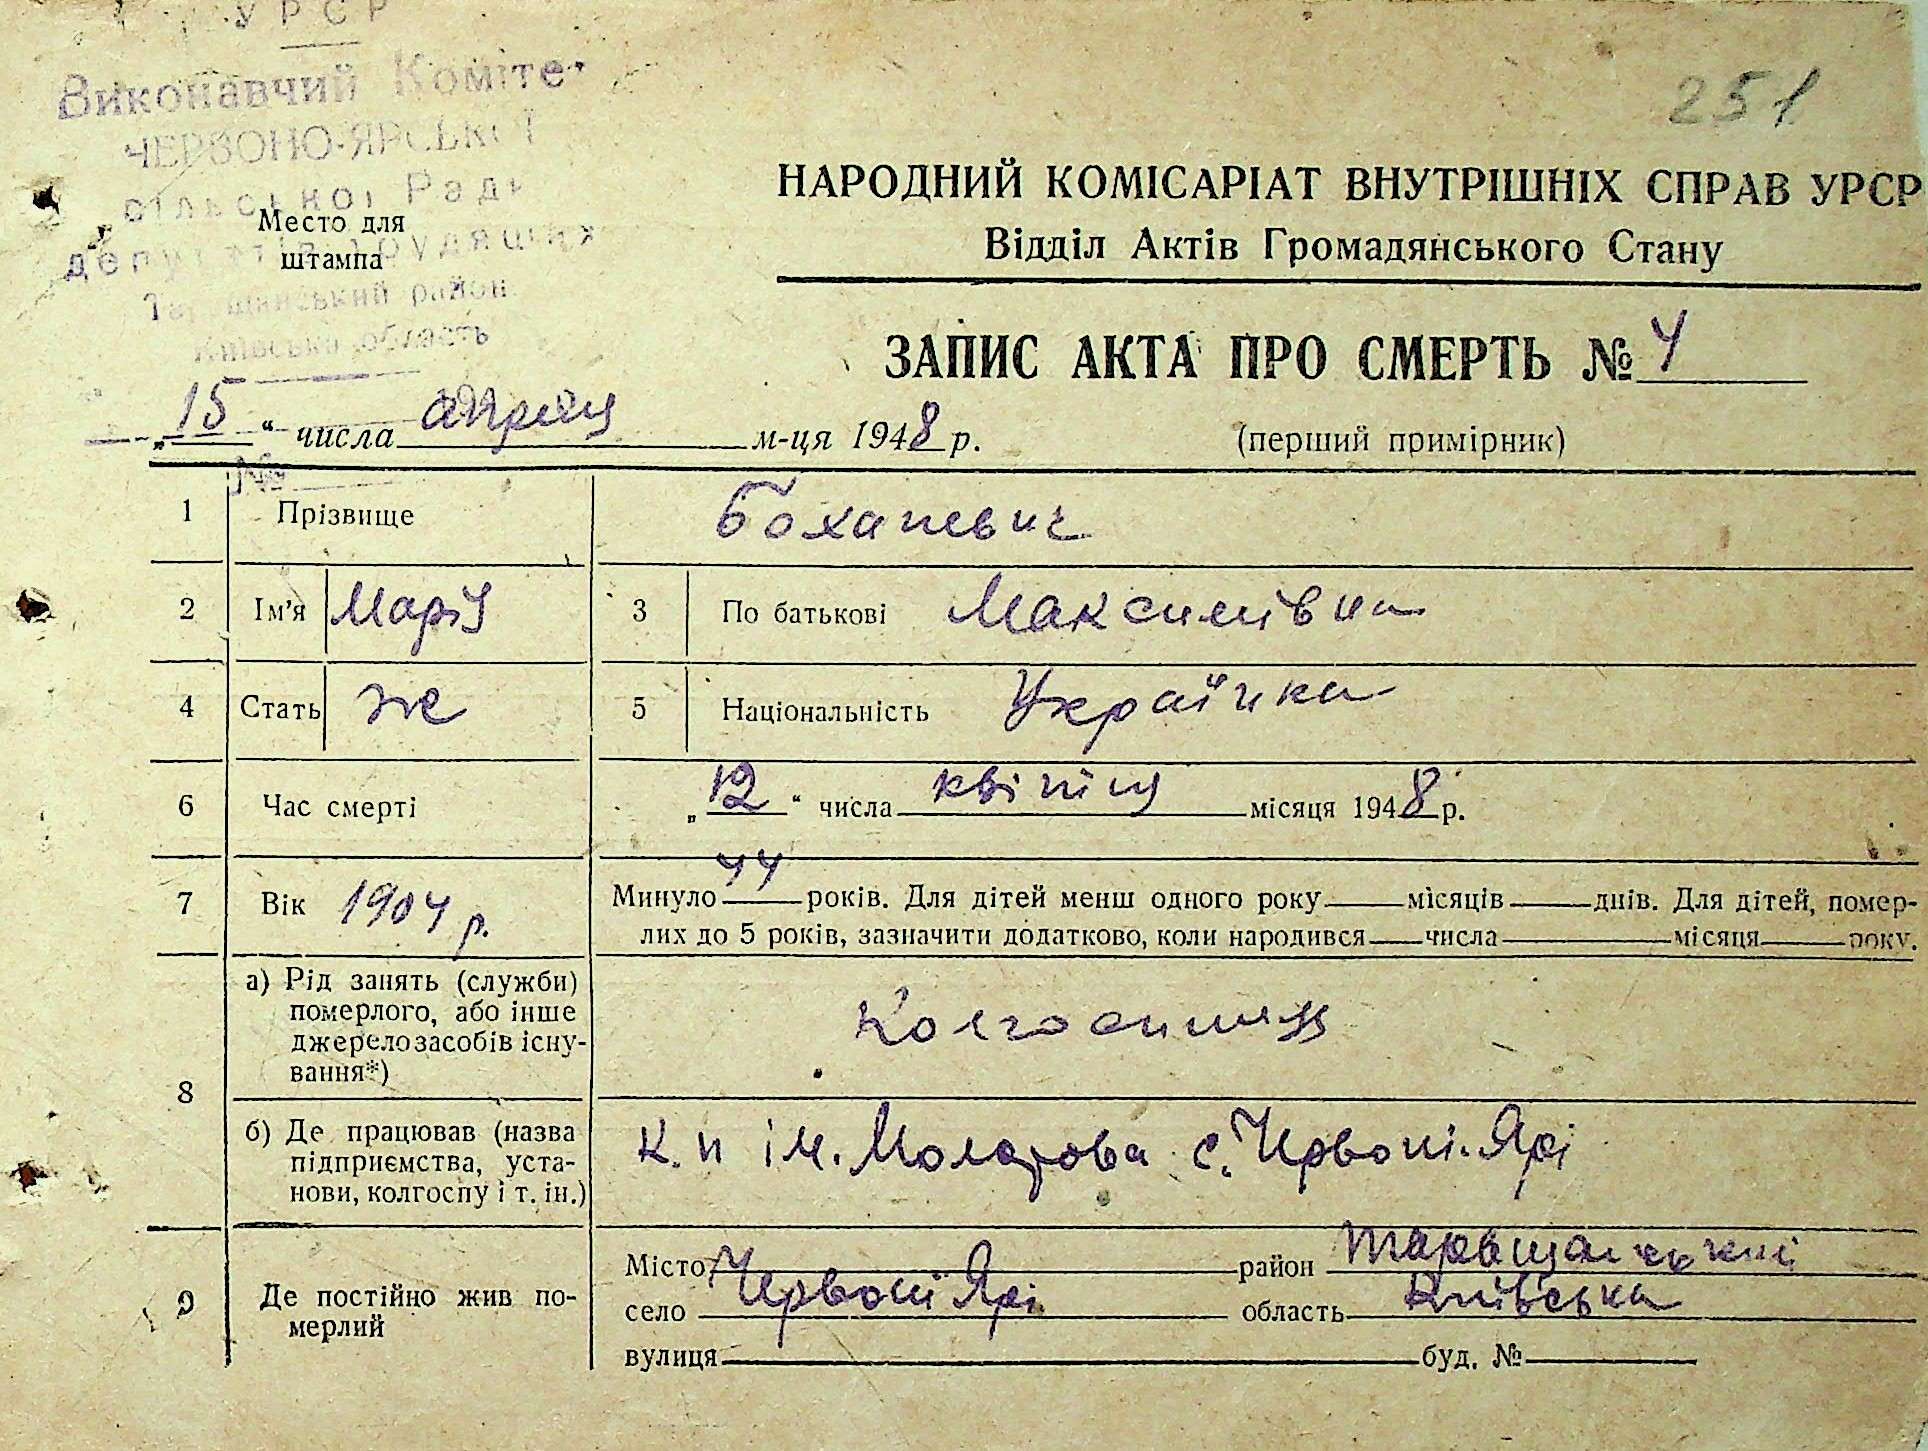 УРСР
Виконавчий Коміте
ЧЕРВОНО-ЯРСЬКОЇ
сільської Ради
депутатів трудящих
Таращанський район
Київська область
251
Место для
штампа
НАРОДНИЙ КОМІСАРІАТ ВНУТРІШНІХ СПРАВ УРСР
Відділ Актів Громадянського Стану
ЗАПИС АКТА ПРО СМЕРТЬ № 4
„15“ числа апреля м-ця 1948 р. (перший примірник)
№
1 Прізвище Боханевич
2 Ім'я Марія 3 По батькові Максимівна
4 Стать ж 5 Національність Українка
6 Час смерті „12“ числа квітня місяця 1948 р.
7 Вік 1904 р. Минуло 44 років. Для дітей менш одного року місяців днів. Для дітей, помер-
лих до 5 років, зазначити додатково, коли народився числа місяця року.
8 а) Рід занять (служби)
померлого, або інше
джерело засобів існу-
вання*)
Колгоспниця
б) Де працював (назва
підприємства, уста-
нови, колгоспу і т. ін.)
ім. Молотова с. Червоні-Ярі
9 Де постійно жив по-
мерлий
Місто район Таращанський
село Червоні Ярі область Київська
вулиця буд. №